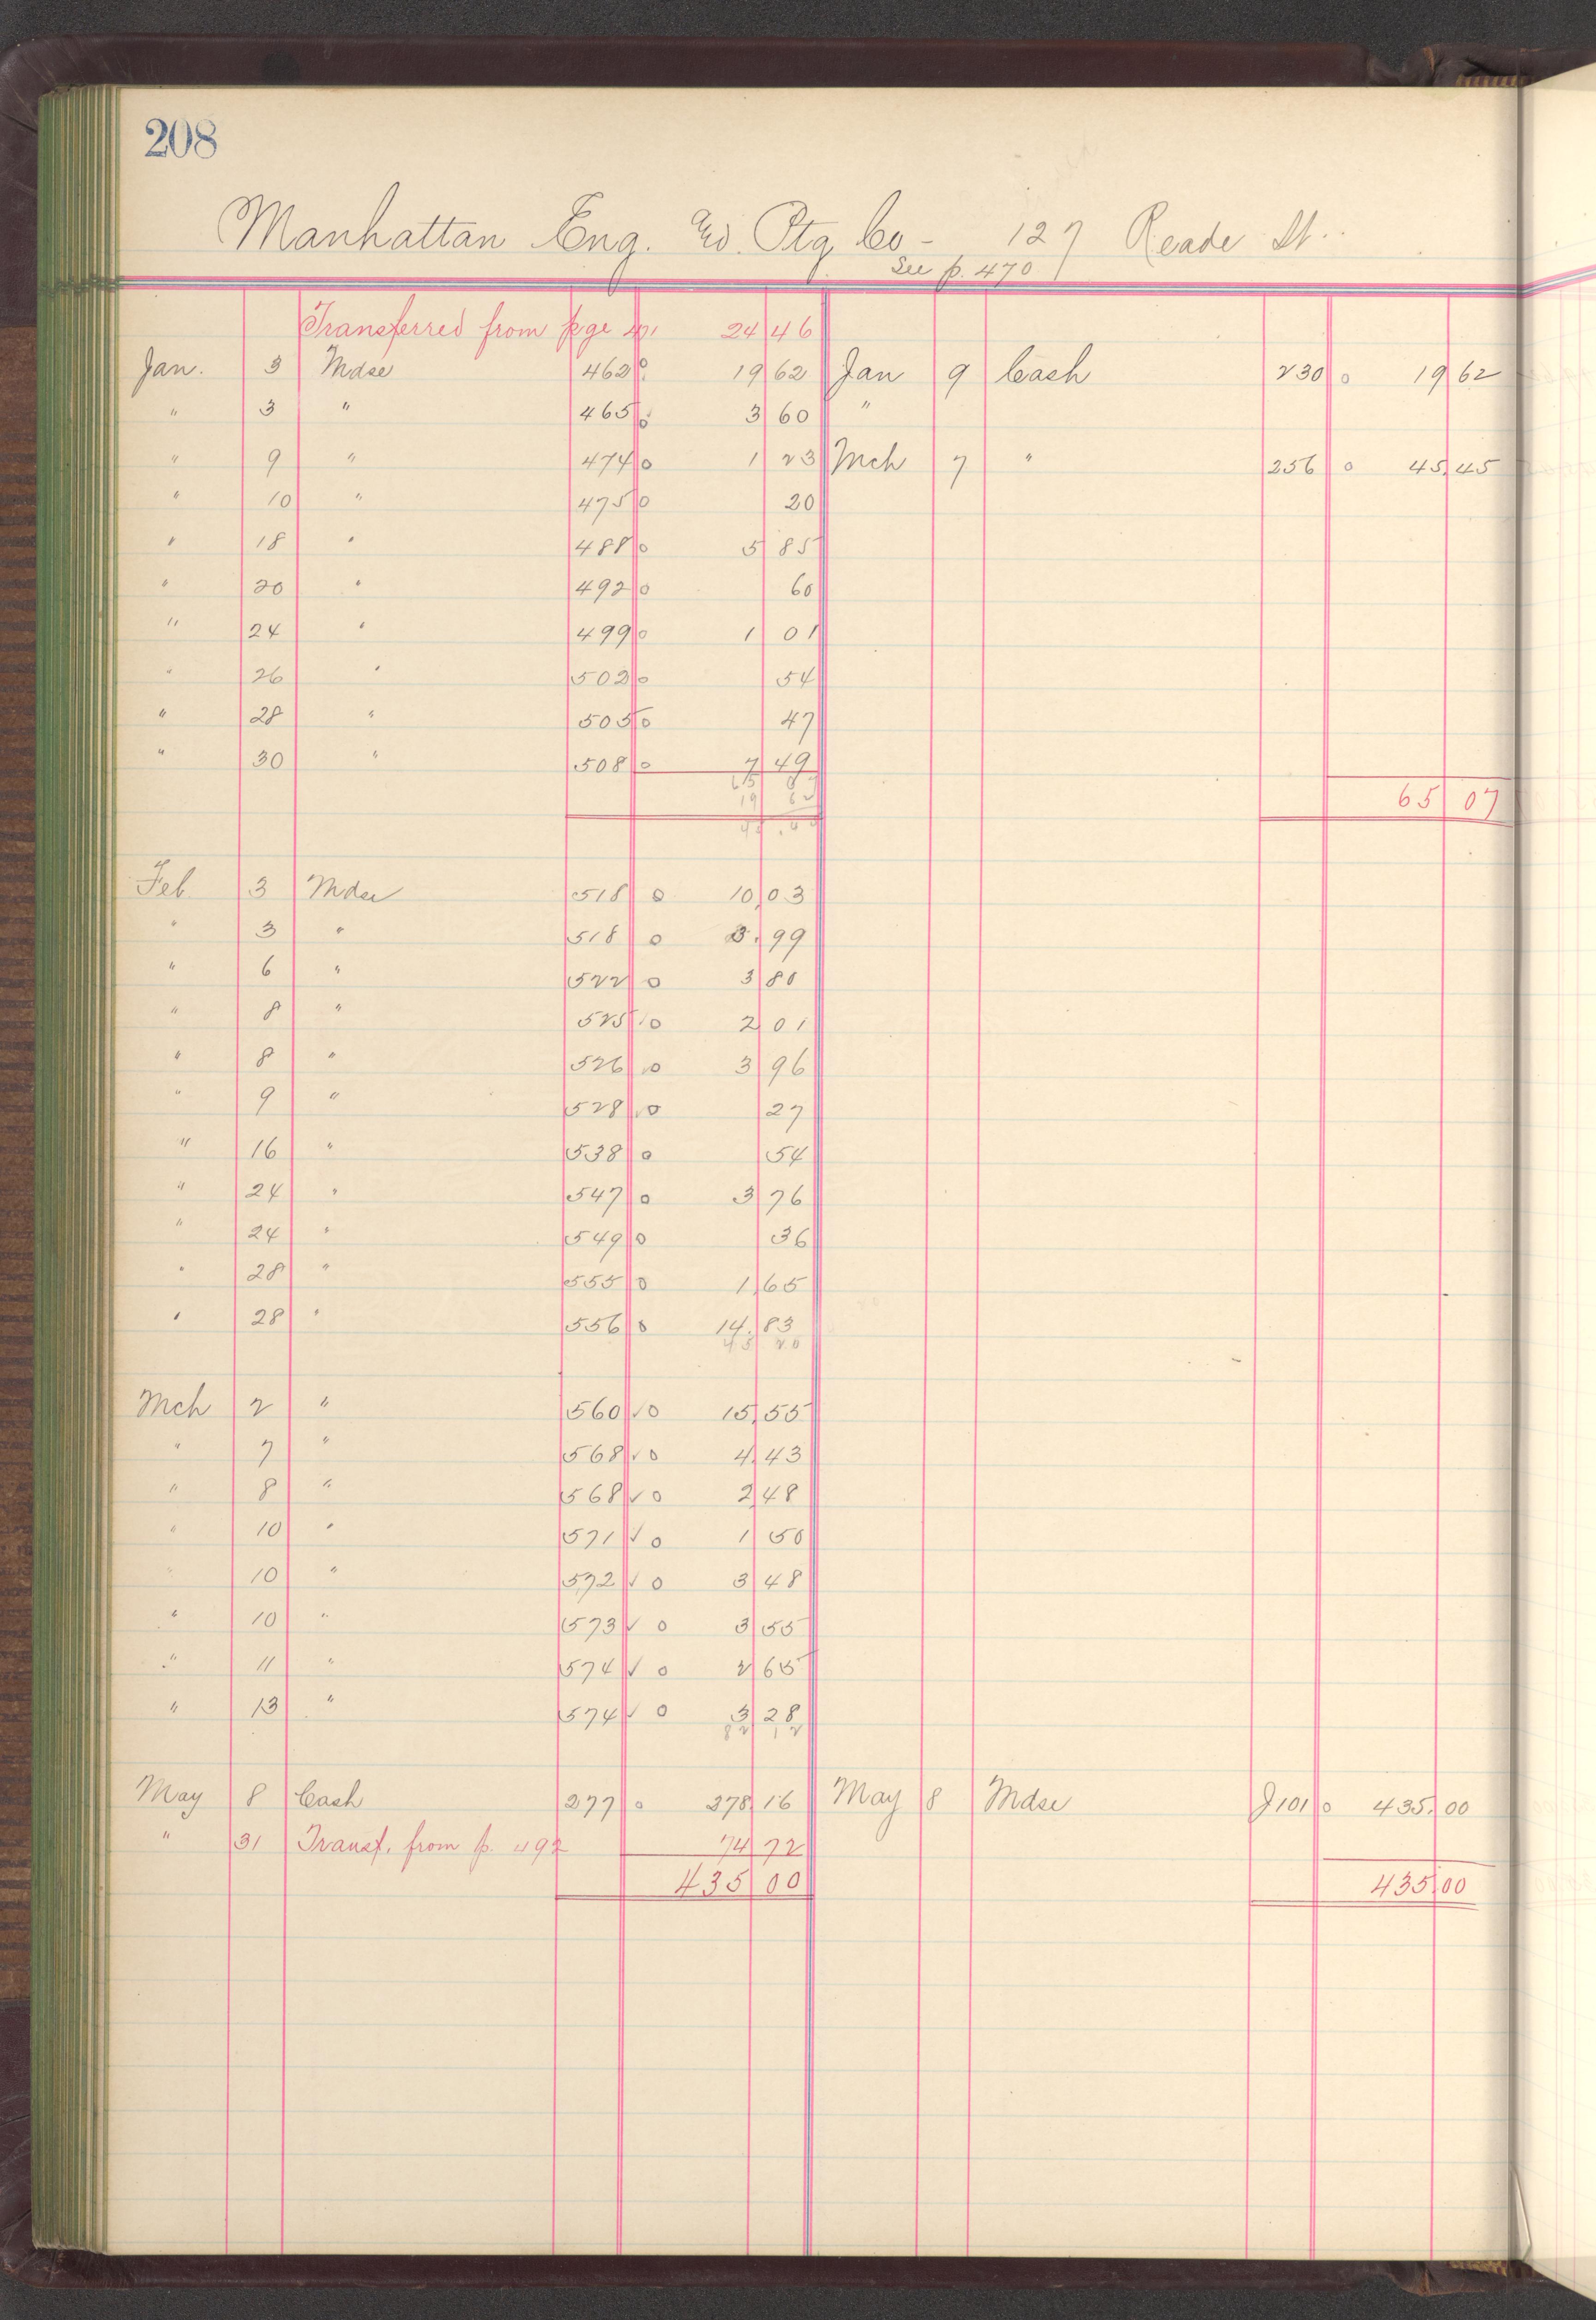 208
Manhattan Eng. and Ptg Co - 127 Reade St.
See p. 470
Transferred from pge 24 46
Jan. 3 Mdse 462 0 19 62 Jan 9 Cash 230 0 19 62
" 3 " 465 0 3 60 "
" 9 " 474 0 1 23 Mch 7 " 256 0 45.45
" 10 " 475 0 20
" 18 " 488 0 5 85
" 20 " 492 0 60
" 24 " 499 0 1 01
" 26 " 502 0 54
" 28 " 505 0 47
" 30 " 508 0 7 49
65 07
19 62
65 07
Feb 3 Mdse 518 0 10.03
" 3 " 518 0 3.99
" 6 " 522 0 3 80
" 8 " 525 0 2 01
" 8 " 526 0 3 96
" 9 " 528 0 27
" 16 " 538 0 54
" 24 " 547 0 3 76
" 24 " 549 0 36
" 28 " 555 0 1.65
" 28 " 556 0 14.83
45 20
Mch 2 " 560 √ 0 15.55
" 7 " 568 √ 0 4.43
" 8 " 568 √ 0 2 48
" 10 " 571 √ 0 1 50
" 10 " 572 √ 0 3 48
" 10 " 573 √ 0 3 55
" 11 " 574 √ 0 2 65
" 13 " 574 √ 0 3 28
82 12
May 8 Cash 277 0 278 16 May 8 Mdse J101 0 435.00
" 31 Transf. from p. 492 74 72
435 00 435.00